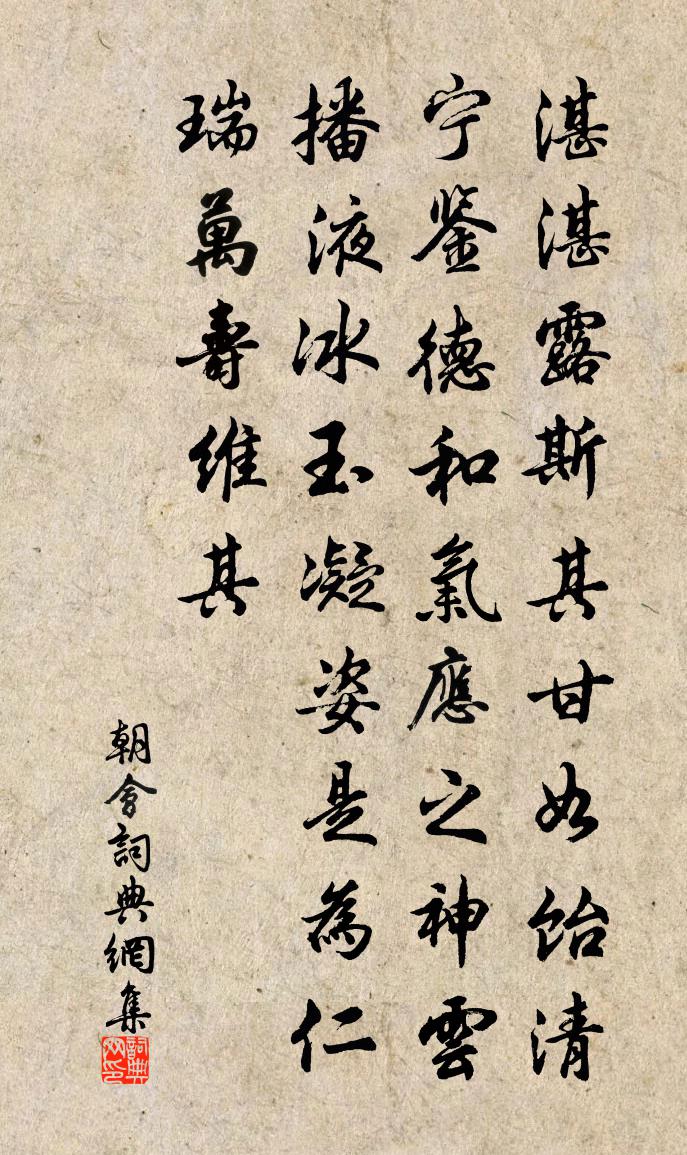 湛湛露斯其甘如飴清
宁鉴德和氣應之神雲
播液冰玉凝姿是為仁
瑞萬壽維其
朝會詞典網集
詞典网印